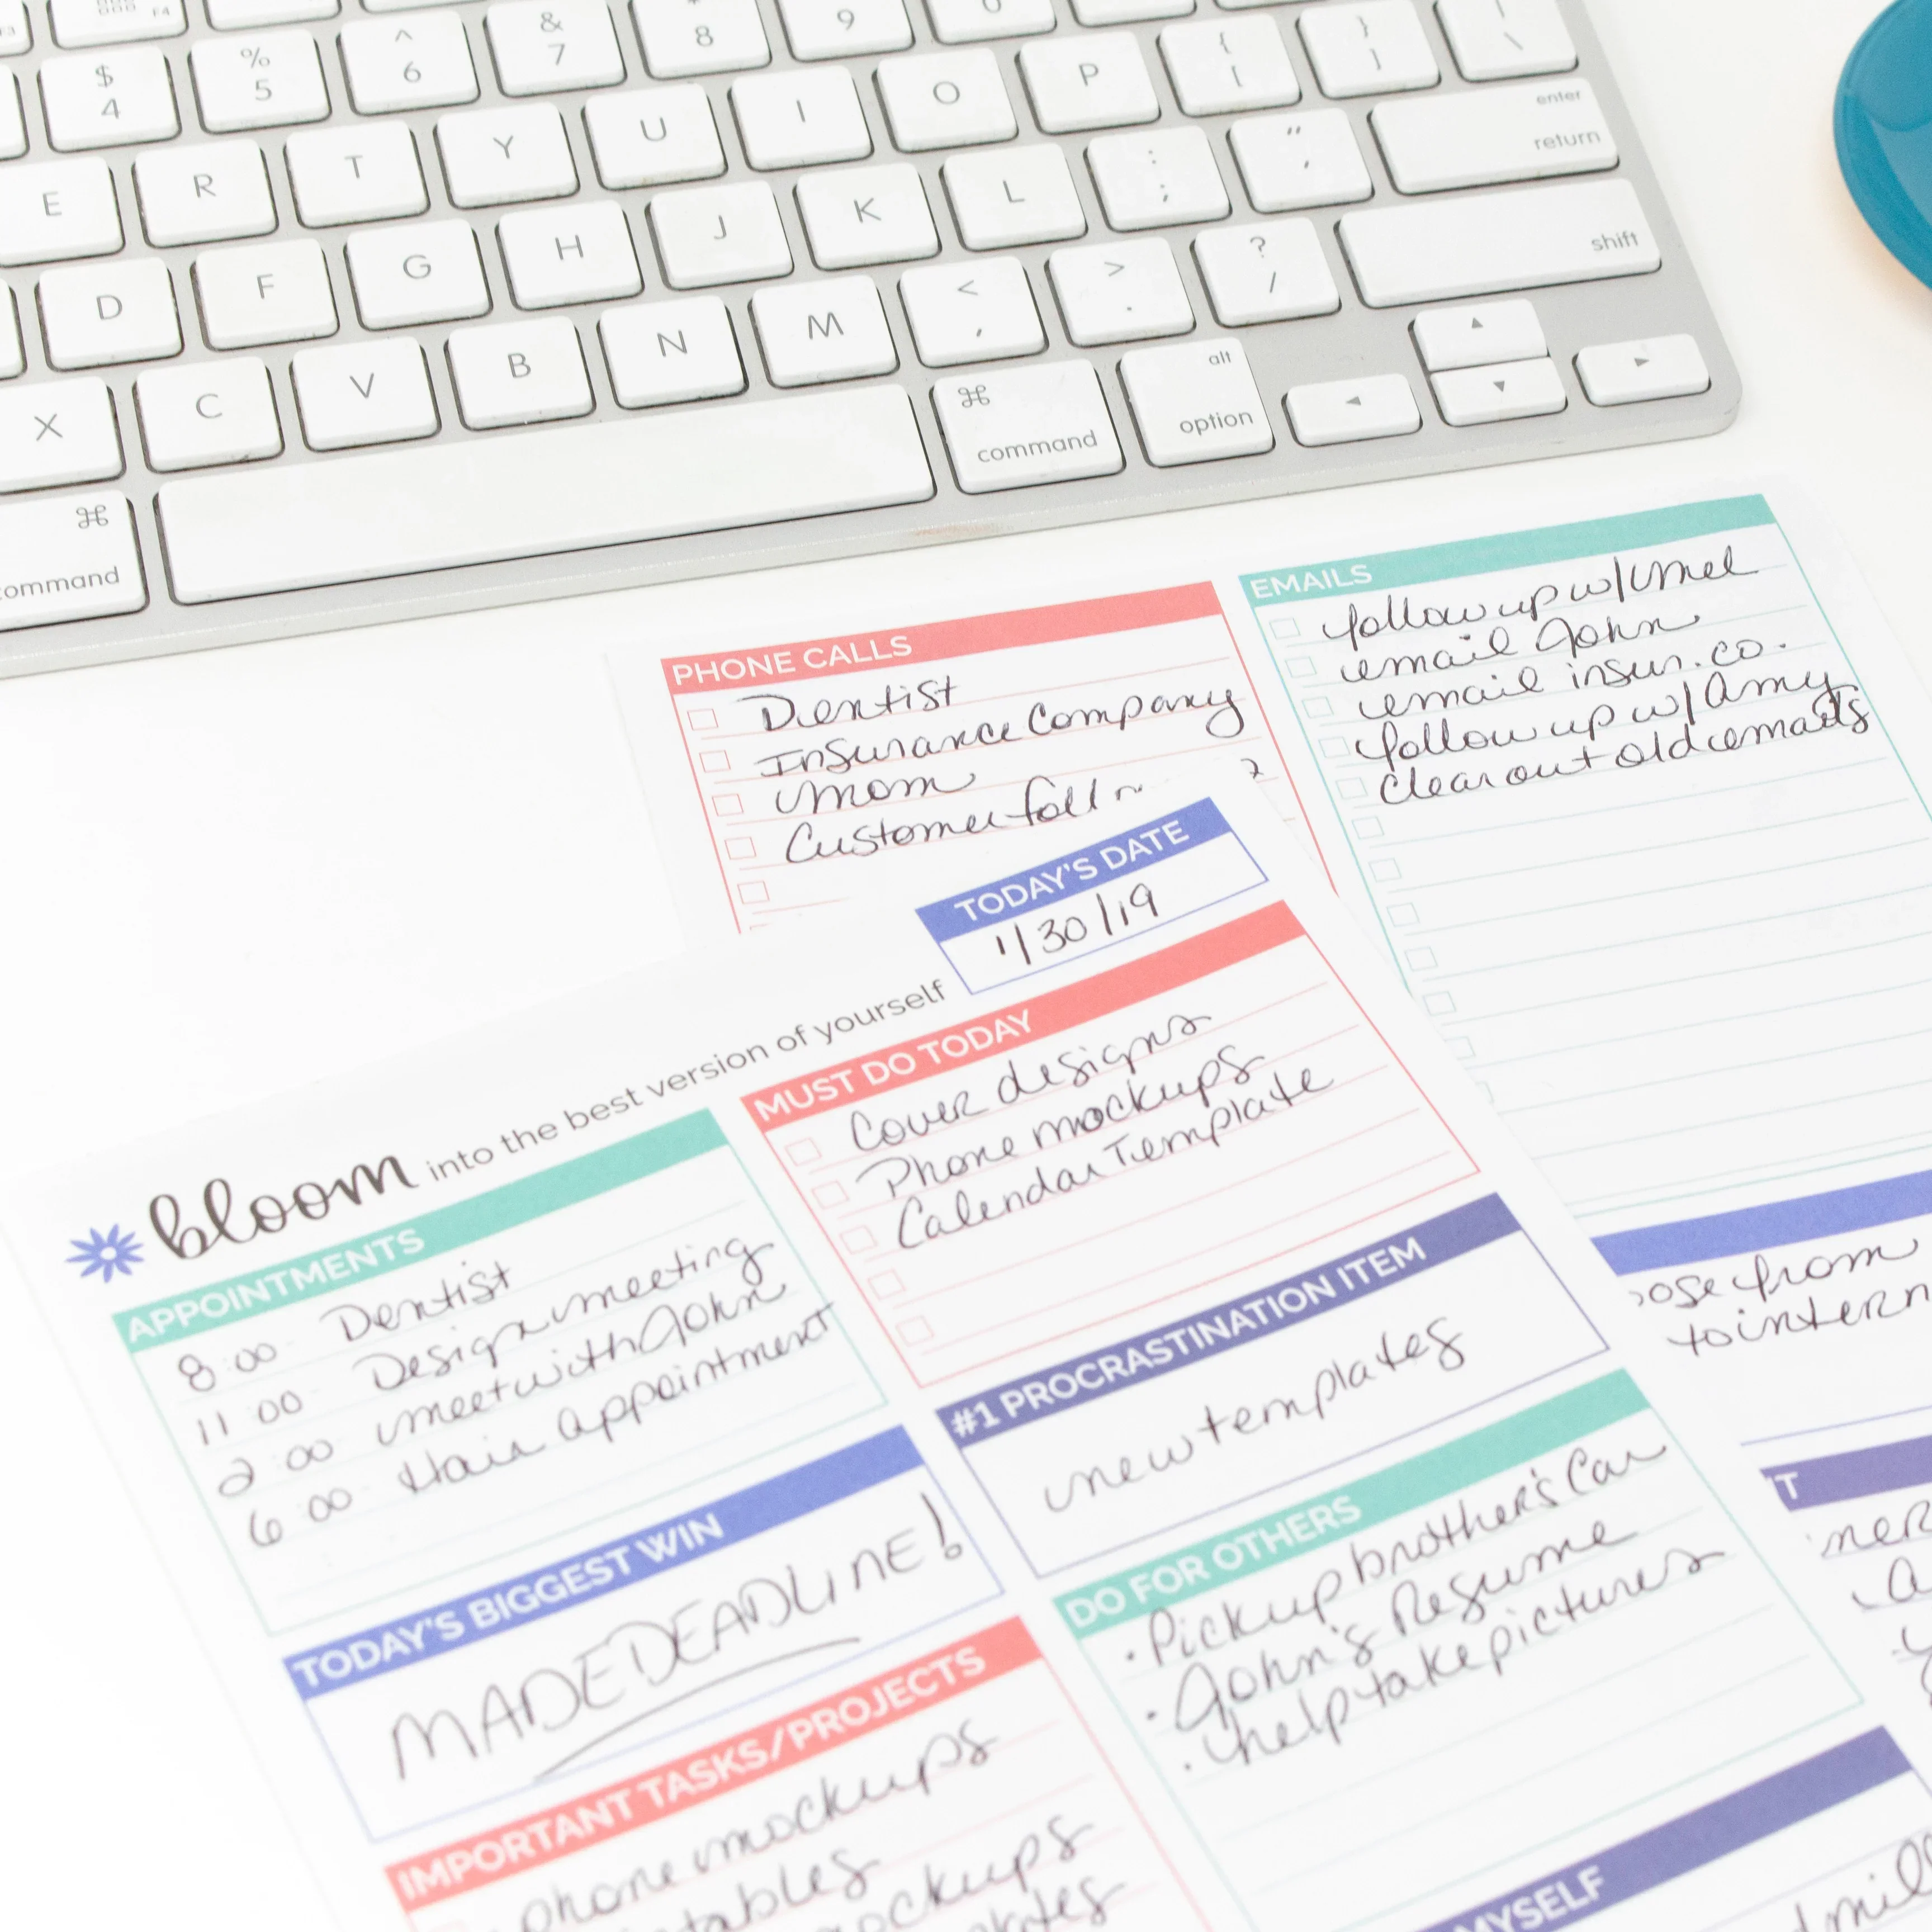 F4
$ % ^ & 8 9
4 5 6 7
E R T Y U I O P { [ } ] \
enter
return
D F G H J K L : ; " '
shift
X C V B N M < , > . ? /
alt
option
⌘ command
⌘ command
PHONE CALLS
Dentist
Insurance Company
Mom
Customer
EMAILS
follow up w/ Mel
email John
email insur. co.
follow up w/ Amy
clear out old emails
TODAY'S DATE
1/30/19
bloom into the best version of yourself
APPOINTMENTS
8:00 Dentist
11:00 Design meeting
2:00 meet with John
6:00 Hair appointment
MUST DO TODAY
Cover designs
Phone mockups
Calendar Template
#1 PROCRASTINATION ITEM
new templates
TODAY'S BIGGEST WIN
MADE DEADLINE!
DO FOR OTHERS
• Pick up brother's Car
• John's Resume
• help take pictures
IMPORTANT TASKS/PROJECTS
phone mockups
mockups
from
to
MYSELF